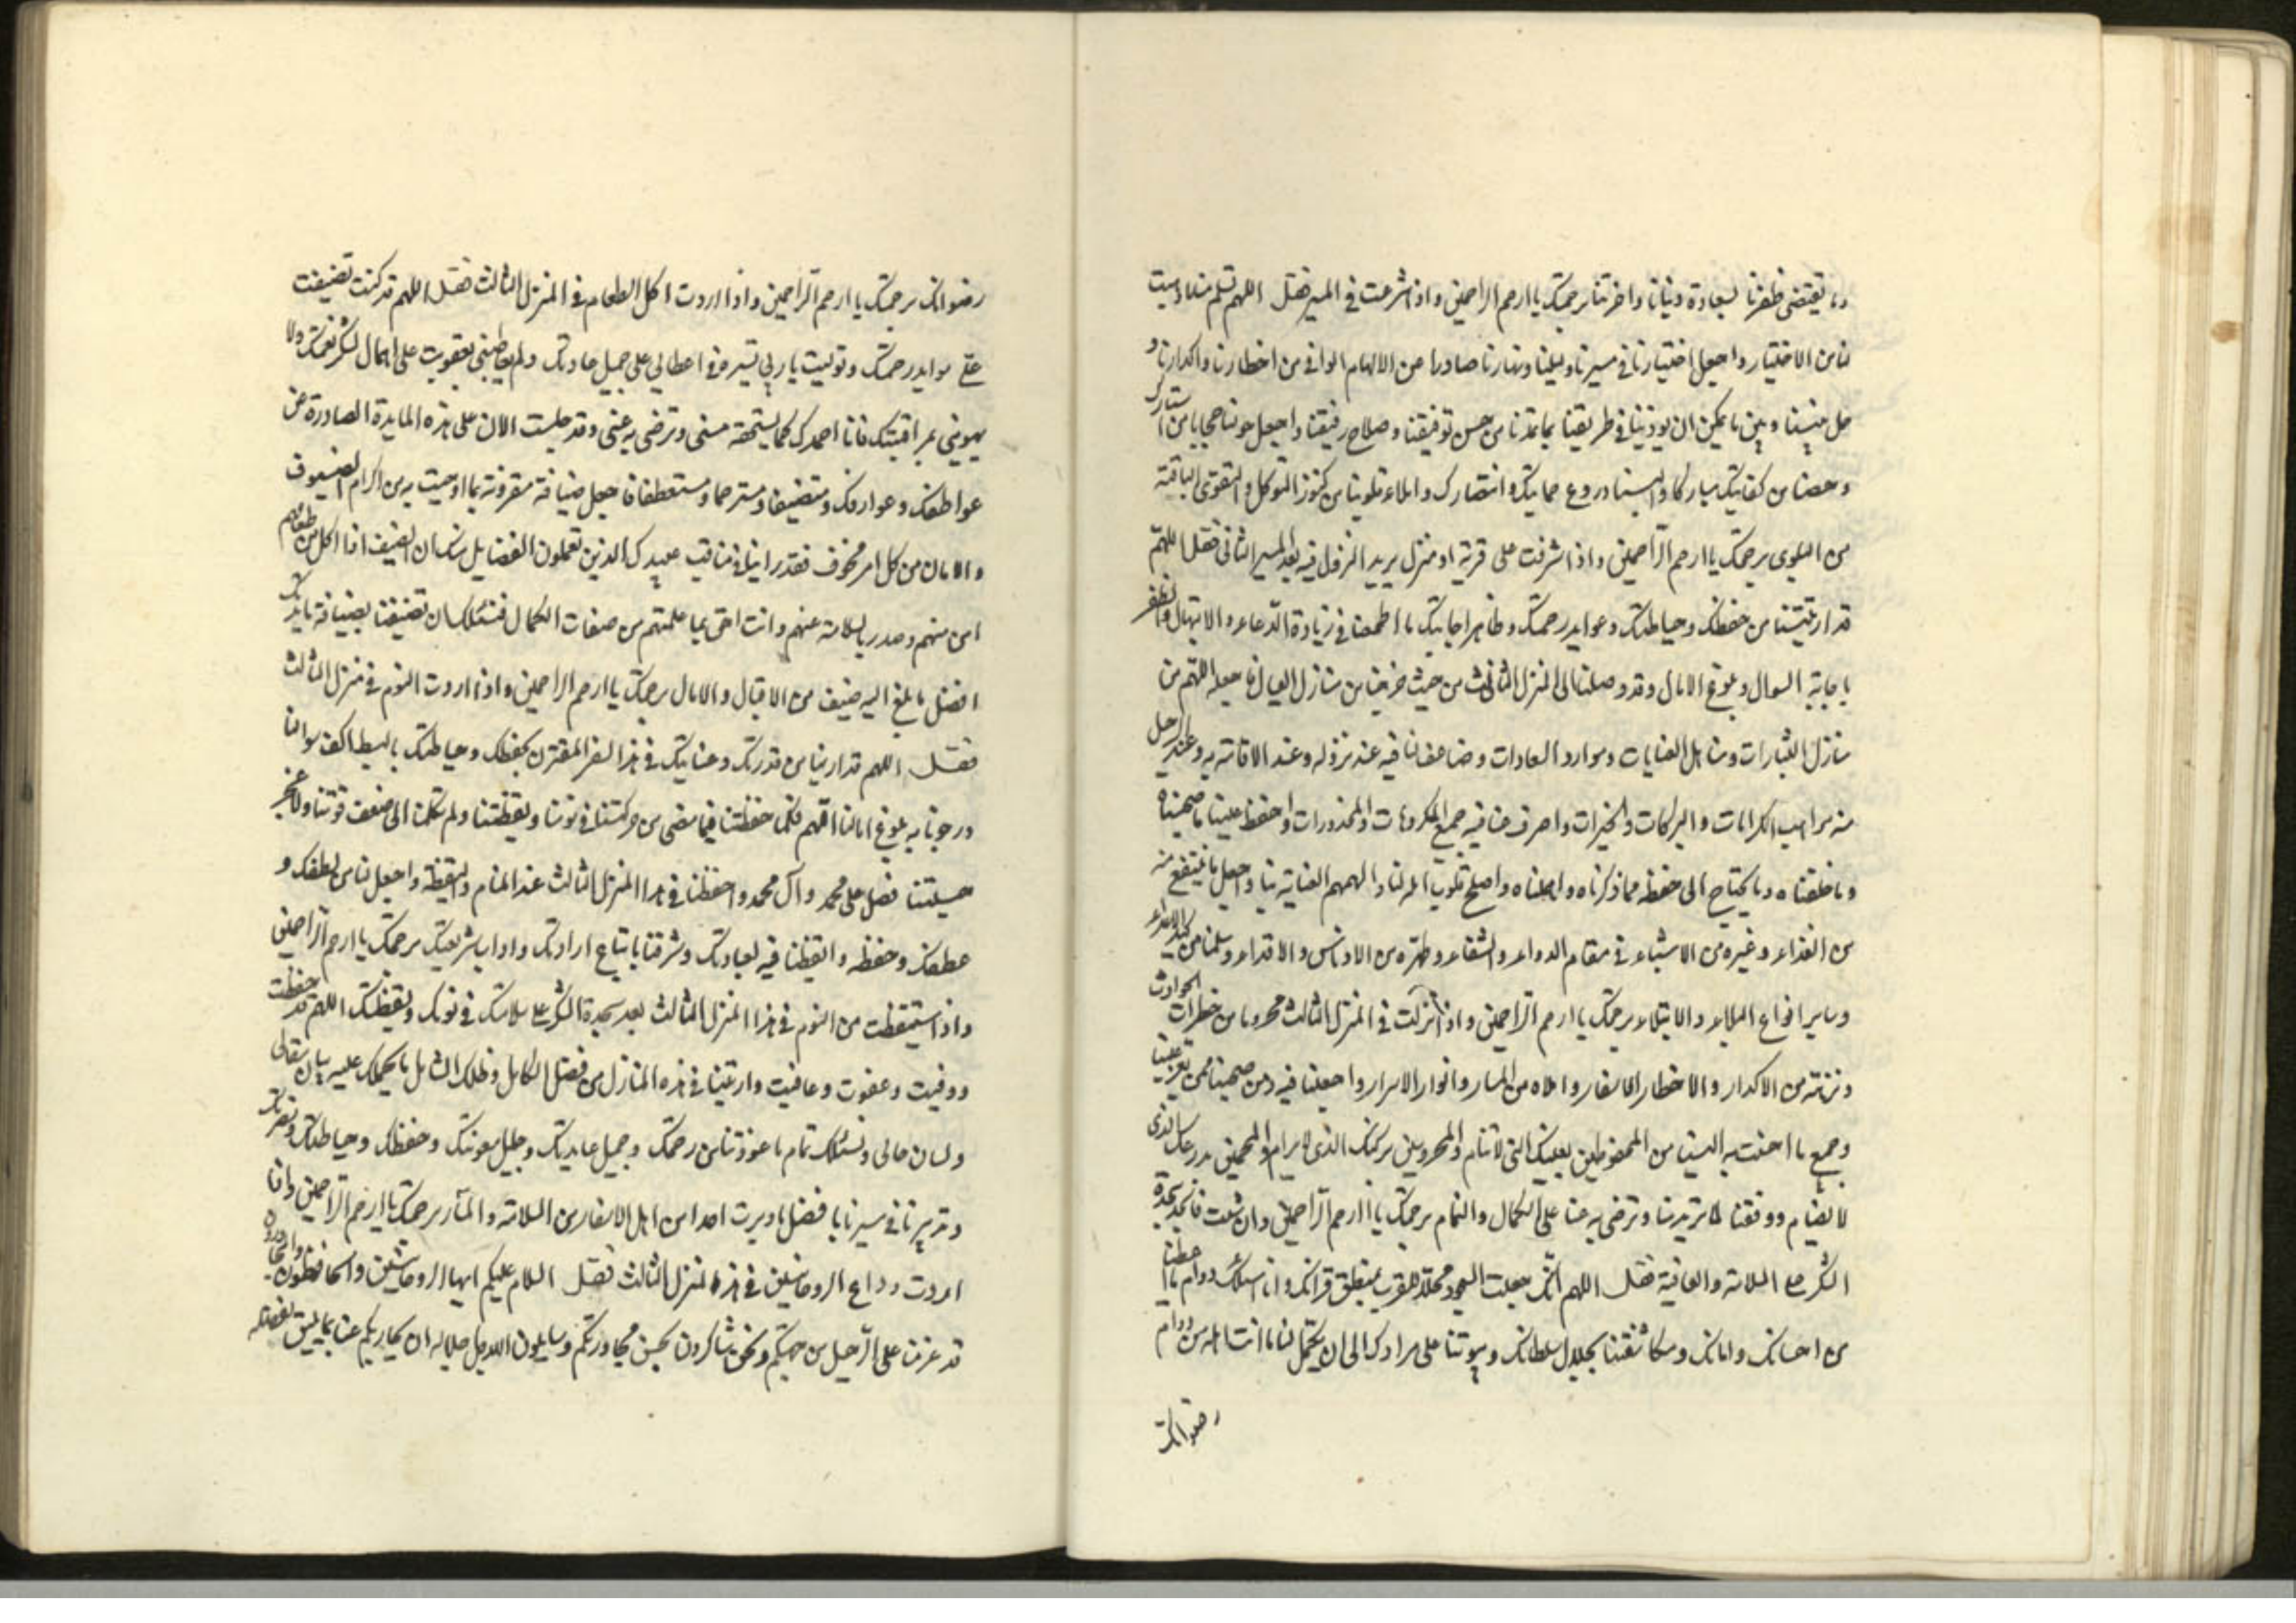 وما يقتضى ظفرنا بسعادة دنيانا واخرتنا برحمتك يا ارحم الراحمين واذا شرعت في المسير فقل اللهم تسلم منا ما وهبت
لنا من الاختيار واجعل اختيارنا في مسيرنا وليلنا ونهارنا صادرا عن الالهام الواقي من اخطارنا واكدارنا و
حل بيننا وبين ما يمكن ان يوذينا في طريقنا بما تمدنا من حسن توفيقنا وصلاح رفيقنا واجعل حولنا حجابا من استارك
وحصنا من كفايتك ومباركا والبسنا دروع حمايتك وانتصارك واملاء قلوبنا من كنوز التوكل والتقوى الباقية
من البلوى برحمتك يا ارحم الراحمين واذا شرفت على قرية او منزل يريد النزول فيه بعد المسير الثاني فقل اللهم
قد اريتنا من حفظك وحياطتك وعوايد رحمتك وظاهر اجابتك ما اطمعنا في زيادة الدعاء والابتهال والظفر
باجابة السوال وبلوغ الامال وقد وصلنا الى المنزل الثالث من حيث خرجنا من منازل العيال فاجعله اللهم من
منازل البشارات ومناهل العنايات وموارد السعادات وضاعف لنا فيه عند نزوله وعند الاقامة به وعند الرحيل
منه مراهب الكرامات والبركات والخيرات واصرف عنا فيه جميع المكروهات والمحذورات واحفظ علينا ما صحبناه
وما خلفناه وما يحتاج الى حفظه مما ذكرناه واهملناه واصلح قلوب اهله لنا والهمهم العناية بنا واجعل ما ننتفع منه
من الغذاء وغيره من الاشياء في مقام الدواء والشفاء وطهره من الادناس والاقذاء وسلمنا من كيد الاعداء
وساير انواع البلاء والابتلاء برحمتك يا ارحم الراحمين واذا نزلت في المنزل الثالث محروسا من خطرات الحوادث
ونزهته من الاكدار والاخطار الاسفار واملاه من المسار وانوار الاسرار واجعلنا فيه ومن صحبنا ممن يعز علينا
وجميع ما احسنت به الينا من المحفوظين بعينك التي لا تنام والمحروسين بركنك الذي لا يرام والمحميين بدرعك الذي
لا يضام ووفقنا لما تريد منا وترضى به عنا على الكمال والتمام برحمتك يا ارحم الراحمين وان شئت فاسجد سجدة
الشكر على السلامة والعافية فقل اللهم انك جعلت السجود محلا للقرب بمنطق قرآنك وانا اسئلك دوام ما اعطيتنا
من احسانك وامانك ومكاشفتنا بجلال سلطانك وبيوتنا على مرادك الى ان يكمل لنا ما انت اهله من دوام
رضوانك
رضوانك برحمتك يا ارحم الراحمين واذا اردت اكل الطعام في المنزل الثالث فقل اللهم قد كنت تضيفت
على موايد رحمتك وتوليت يا ربي تسيره في اعطائي على جميل عادتك ولم يعاجلني بعقوبت على اهمال لشكر نعمتك ولا
يهويني بمراقبتك فانا احمدك كما يستحقه مني وترضى به عني وقد جلست الان على هذه المايدة الصادرة عن
عواطفك وعوارفك ومتضيفا ومسترحما ومستعطفا فاجعل ضيافة مقرونة بما اوجبت به من اكرام الضيوف
والامان من كل امر مخوف فقد راينا في مناقب عبيدك الذين تعملون الفضايل بشان الضيف اذا اكل من طعامهم
امن منهم وصدر بالسلامة عنهم وانت احق بما علمتهم من صفات الكمال فنسئلك ان تضيفنا بضيافة مايدتك
افضل ما بلغ اليه ضيف من الاقبال والامال برحمتك يا ارحم الراحمين واذا اردت النوم في منزل الثالث
فقل اللهم قد اريتنا من قدرتك وعنايتك في هذا السفر المقترن بحفظك وحياطتك ما بسط اكف سوالنا
ورجونا به بلوغ امالنا اللهم فكما حفظتنا فيما مضى من حركتنا في نومنا ويقظتنا ولم تكلنا الى ضعف قوتنا ولا عجز
حيلتنا فصل على محمد وآل محمد واحفظنا في هذا المنزل الثالث عند المنام واليقظة واجعل لنا من لطفك و
عطفك وحفظه وايقظنا فيه لعبادتك وشرفنا باتباع ارادتك واداب شريعتك برحمتك يا ارحم الراحمين
واذا استيقظت من النوم في هذا المنزل الثالث بعد سجدة الشكر على سلامتك في نومك ويقظتك اللهم قد حفظت
ووقيت وعفوت وعافيت واريتنا في هذه المنازل من فضلك الكامل وظلك الشامل ما يحملك عليه بلسان مقالي
ولسان حالي ونسئلك تمام ما عوذتنا من رحمتك وجميل عايدتك وجليل معونتك وحفظك وحياطتك ونصرتك
وتدبيرنا في سيرنا بافضل ما دبرت احدا من اهل الاسفار من السلامة والمآرب برحمتك يا ارحم الراحمين واذا
اردت وداع الروحانيين في هذه المنزل الثالث فقل السلام عليكم ايها الروحانيين والحافظون والمجاورون
قد عزمنا على الرحيل من حميتكم ونحن شاكرون بحسن مجاورتكم وسايلون الله جل جلاله ان يجازيكم عنا بما يليق بفضله